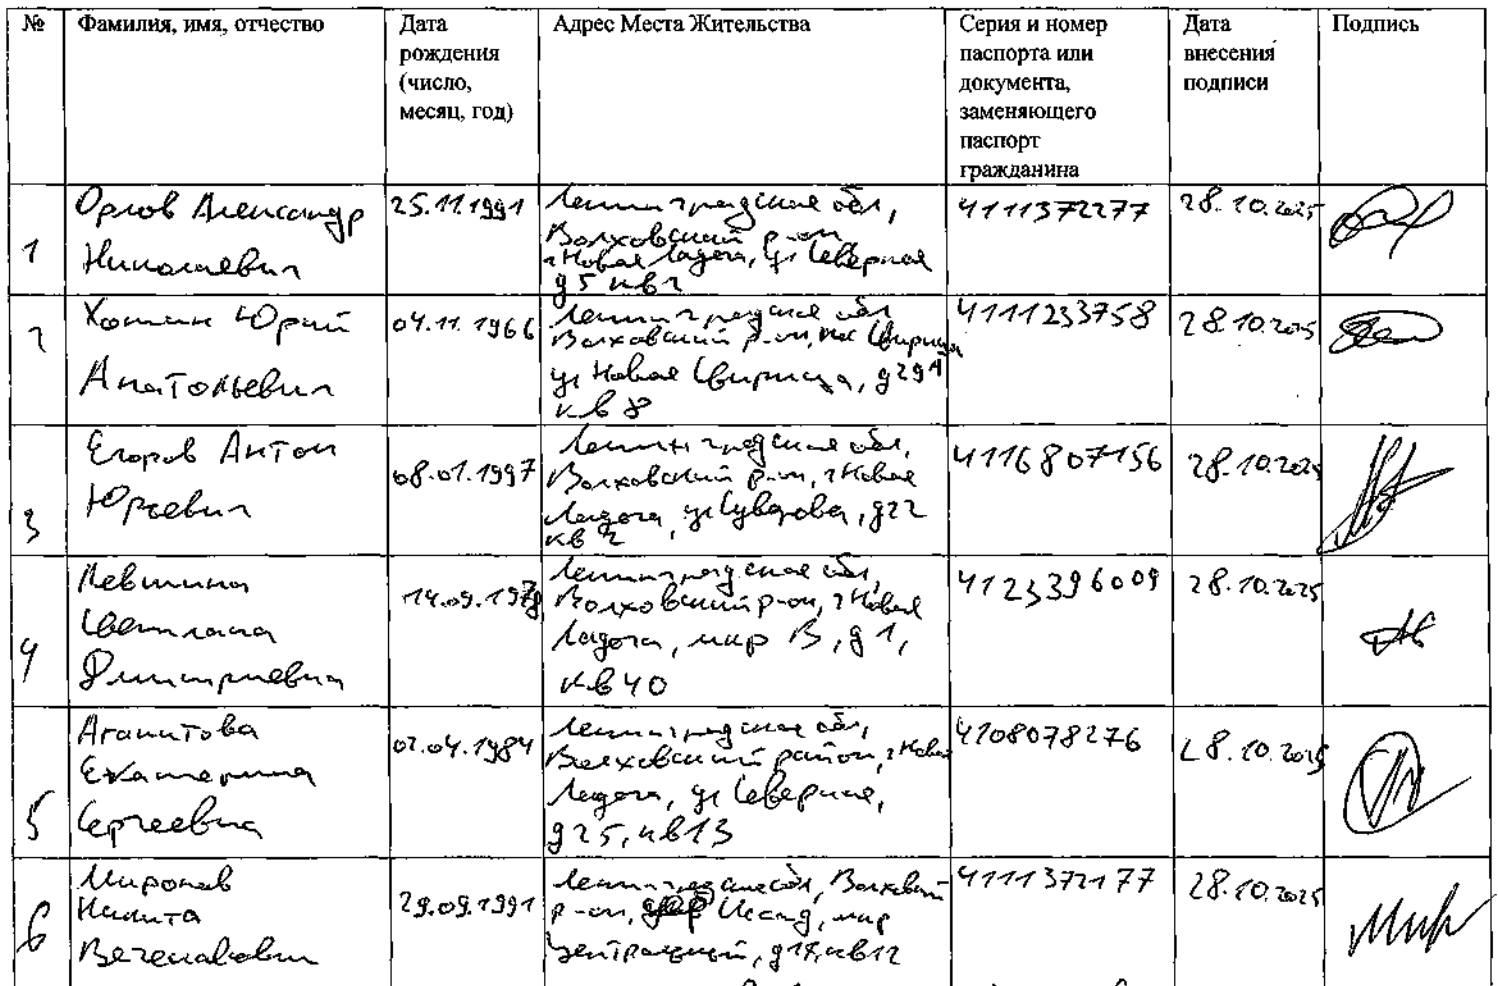 №
Фамилия, имя, отчество
Дата
рождения
(число,
месяц, год)
Адрес Места Жительства
Серия и номер
паспорта или
документа,
заменяющего
паспорт
гражданина
Дата
внесения
подписи
Подпись
1
Орлов Александр
Николаевич
25.11.1991
Ленинградская обл,
Волховский р-он
г Новая Ладога, ул Северная
д 5 кв 2
4111372277
28.10.2025
2
Хомин Юрий
Анатольевич
04.11.1966
Ленинградская обл
Волховский р-он, пос Свирица
ул Новая Свирица, д 29А
кв 8
4111233758
28.10.2025
3
Егоров Антон
Юрьевич
08.01.1997
Ленинградская обл,
Волховский р-он, г Новая
Ладога, ул Суворова, д 22
кв 2
4116807156
28.10.2025
4
Левшина
Светлана
Дмитриевна
14.09.1979
Ленинградская обл,
Волховский р-он, г Новая
Ладога, мкр В, д 1,
кв 40
4123396009
28.10.2025
5
Агапитова
Екатерина
Сергеевна
02.04.1984
Ленинградская обл,
Волховский район, г Новая
Ладога, ул Северная,
д 25, кв 13
4108078276
28.10.2025
6
Миронов
Никита
Вячеславович
29.09.1991
Ленинградская обл, Волховский
р-он, дер Иссад, мкр
Центральный, д 17, кв 12
4111372177
28.10.2025